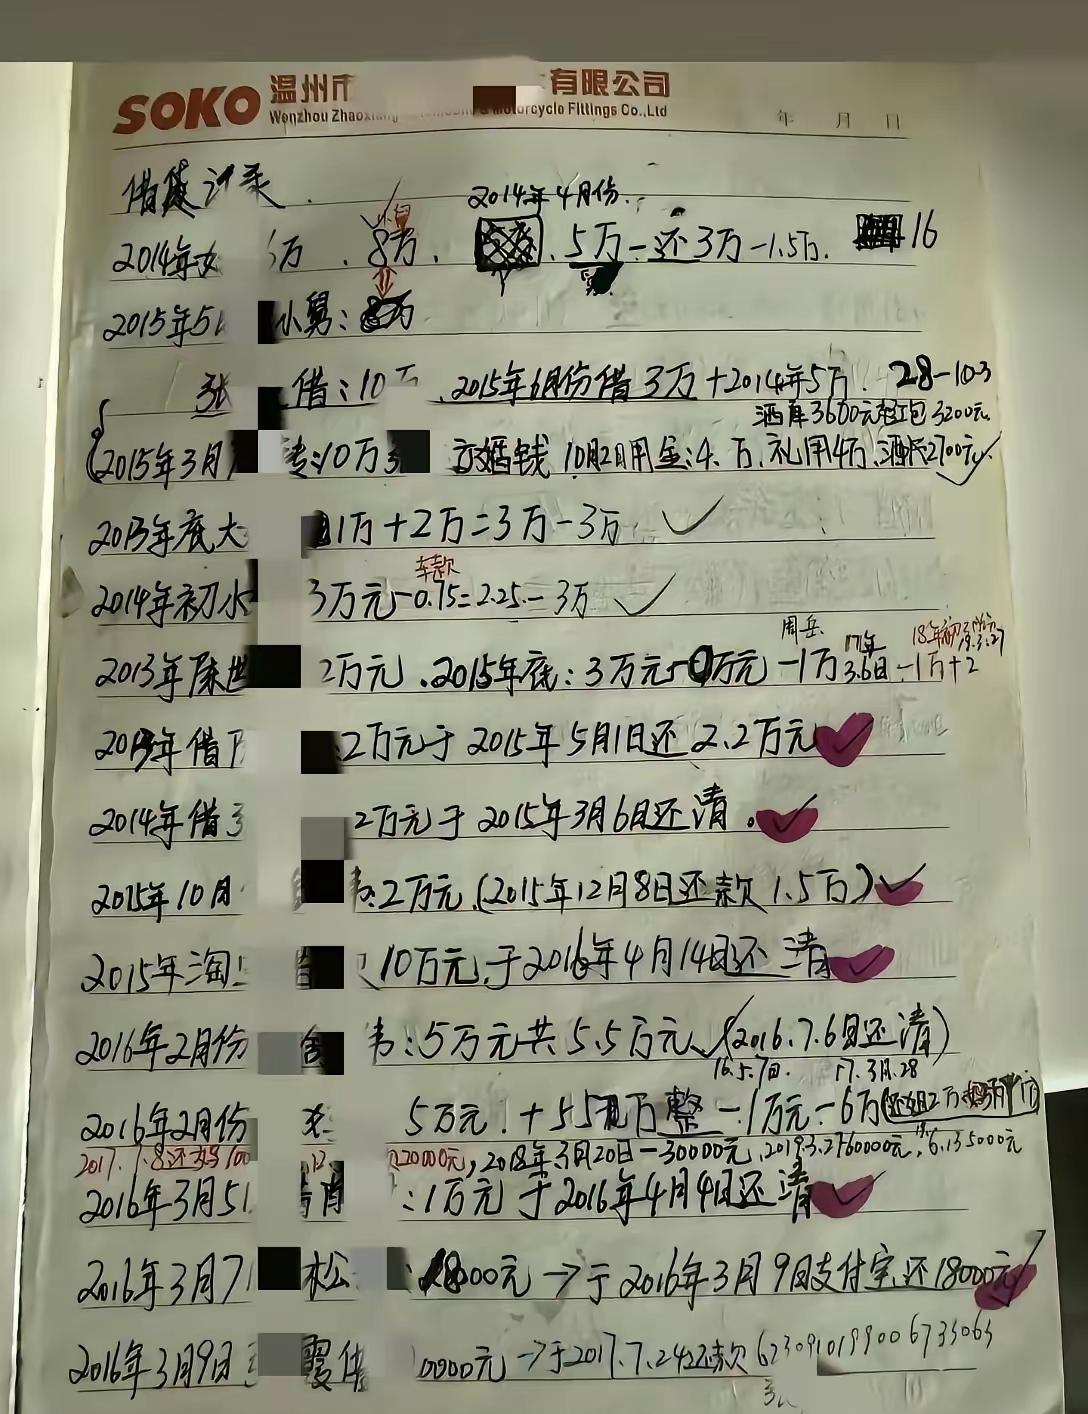 SOKO 温州市 有限公司
Wenzhou Zhaoxiang Motorcycle Fittings Co.,Ltd
年 月 日
借贷记录
2014年4月份
2014年 万、8万、5万-还3万-1.5万. 16
2015年5 小舅：8万
张 借：10万 2015年6月份借3万+2014年5万. 28-10-3
酒席3600元 红包3200元
2015年3月 10万 订婚钱 10月2日用金:4.万、礼用4万、2700元
2013年底大 1万+2万=3万-3万
车款
2014年初小 3万元-0.75=2.25-3万
周岳 17年 18年初
2013年陈世 2万元、2015年底：3万元 万元-1万 3.6日-1万+2
年借 2万元于2015年5月1日还2.2万元
2014年借 2万元于2015年3月6日还清。
2015年10月 2万元(2015年12月8日还款1.5万)
2015年淘 10万元于2016年4月14日还清
2016年2月份 ：5万元共5.5万元(2016.7.6日还清)
16.5.7日. 17.3月.28
2016年2月份 5万元！+5.5万整-1万元-6万
2017.7.8还 20000元，2018年3月20日-30000元，2019.3.2760000元，6.135000元
2016年3月5 ：1万元于2016年4月4日还清
2016年3月7 松 18000元→于2016年3月9日支付宝还18000元
2016年3月9日 霞借 0000元→于2017.7.24还款6230910199006733063